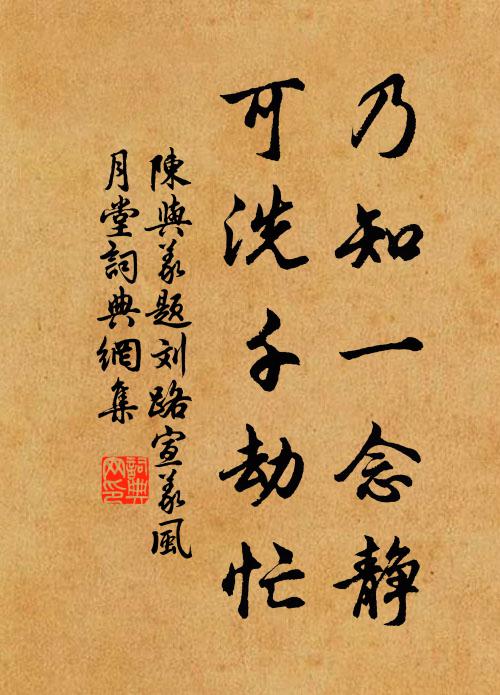 乃知一念静
可洗千劫忙
陳與義題刘路宣義風
月堂詞典網集
詞典
网印